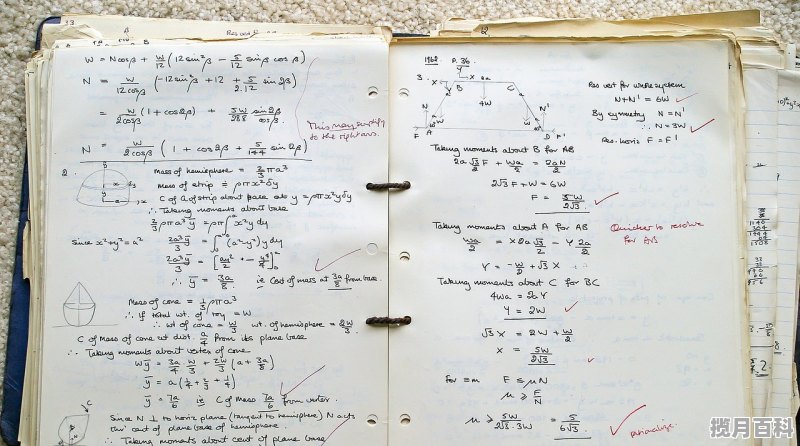 33
W = Ncosβ + W/12 (12 sin²β - 5/12 sinβ cosβ)
N = W/12cosβ (-12sin²β + 12 + 5/2.12 sin 2β)
= W/2cosβ (1 + cos2β) + 5W/288 sin2β/cosβ.
This may simplify
to the right ans.
N = W/2cosβ (1 + cos2β + 5/144 sin2β)
2.
Mass of hemisphere = 2/3 ρπa³
Mass of strip ≠ ρπx²δy
C of G of strip about base as y = ρπx²yδy
∴ Taking moments about base
2/3 ρπa³ȳ = ∫ρπx²y dy
since x²+y²=a² 2a³ȳ/3 = ∫(a²-y²)y dy
2a³ȳ/3 = [ay²/2 + -y⁴/4]
∴ ȳ = 3a/8 ie Cent of mass at 3a/8 from base.
Mass of cone = 1/3 ρπa³
∴ If total wt. of toy = W
∴ wt of cone = W/3 wt. of hemisphere = 2W/3
C of Mass of cone at dist. a/4 from its plane base
∴ Taking moments about vertex of cone
Wȳ = 3a/4 W/3 + 2W/3 (a + 3a/8)
ȳ = 7a/6 ie C of mass 7a/6 from vertex.
Since N ⊥ to horiz plane (tangent to hemisphere) N acts
thro' cent of plane base of hemisphere.
∴ Taking moments about cent of plane base
1962 P. 36
3.
X
B
C
4W
N
N'
W
A
D
F
F'
Res vert for whole system
N+N' = 6W
By symmetry N = N'
∴ N = 3W
Res. horiz F = F'
Taking moments about B for AB
2a √3/2 F + Wa/2 = 2aN/2
2√3F + W = 6W
F = 5W/2√3
Taking moments about A for AB
Quicker to resolve
Wa/2 = X2a√3/2 - Y 2a/2
Y = -W/2 + √3 X
Taking moments about C for BC
4Wa = 2aY
Y = 2W
√3X = 2W + W/2
X = 5W/2√3
for =m F ≤ μN
μ ≥ F/N
μ ≥ 5W/2√3.3W = 5/6√3
揽月百科